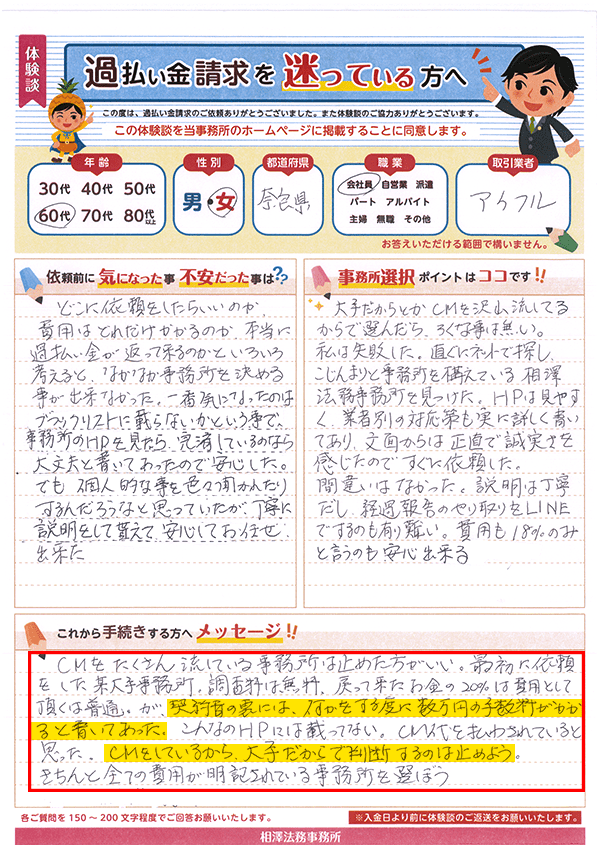 体験談
過払い金請求を迷っている方へ
この度は、過払い金請求のご依頼ありがとうございました。また体験談のご協力ありがとうございます。
この体験談を当事務所のホームページに掲載することに同意します。
年齢
30代 40代 50代
60代 70代 80代以上
性別
男・女
都道府県
奈良県
職業
会社員 自営業 派遣
パート アルバイト
主婦 無職 その他
取引業者
アイフル
お答えいただける範囲で構いません。
依頼前に気になった事 不安だった事は??
どこに依頼をしたらいいのか、
費用はどれだけかかるのか、本当に
過払い金が返って来るのかといろいろ
考えると、なかなか事務所を決める
事が出来なかった。一番気になったのは
ブラックリストに載らないかという事で、
事務所のHPを見たら、完済しているのなら
大丈夫と書いてあったので安心した。
でも個人的な事を色々聞かれたり
するんだろうなと思っていたが、丁寧に
説明をして貰えて、安心してお任せ
出来た
事務所選択ポイントはココです!!
大手だからとか CMを沢山流してる
からで選んだら、ろくな事は無い。
私は失敗した。直ぐにネットで探し、
こじんまりと事務所を構えている相澤
法務事務所を見つけた。HPは見やす
く、業者別の対応策も実に詳しく書い
てあり、文面からは正直で誠実さを
感じたのですぐに依頼した。
間違いはなかった。説明は丁寧
だし、経過報告のやり取りをLINE
でするのも有り難い。費用も18%のみ
と言うのも安心出来る
これから手続きする方へメッセージ!!
CMをたくさん流している事務所は止めた方がいい。最初に依頼
をした某大手事務所、調査料は無料、戻って来たお金の20%は費用として
頂くは普通。が、契約書の裏には、なにかをする度に数万円の手数料がかか
ると書いてあった。こんなのHPには載ってない。CM代を払わされていると
思った。CMをしているから、大手だからで判断するのは止めよう。
きちんと全ての費用が明記されている事務所を選ぼう
各ご質問を150〜200文字程度でご回答お願いいたします。
※入金日より前に体験談のご返送をお願いいたします。
相澤法務事務所